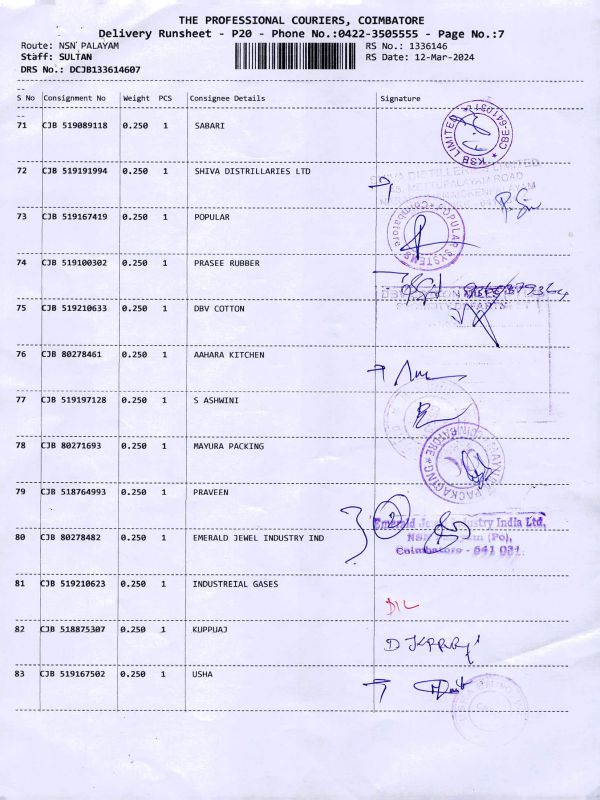 THE PROFESSIONAL COURIERS, COIMBATORE
Delivery Runsheet - P20 - Phone No.:0422-3505555 - Page No.:7
Route: NSN PALAYAM RS No.: 1336146
Staff: SULTAN RS Date: 12-Mar-2024
DRS No.: DCJB133614607
--
S No Consignment No Weight PCS Consignee Details Signature
--
71 CJB 519089118 0.250 1 SABARI
KSB LIMITED * CBE-641
72 CJB 519191994 0.250 1 SHIVA DISTRILLARIES LTD
SHIVA DISTILLERIES LIMITED
ROAD
73 CJB 519167419 0.250 1 POPULAR
POPULAR SYSTEMS * Coimbatore *
74 CJB 519100302 0.250 1 PRASEE RUBBER
75 CJB 519210633 0.250 1 DBV COTTON
76 CJB 80278461 0.250 1 AAHARA KITCHEN
77 CJB 519197128 0.250 1 S ASHWINI
78 CJB 80271693 0.250 1 MAYURA PACKING
PACKAGING
79 CJB 518764993 0.250 1 PRAVEEN
2
Emerald Jewel Industry India Ltd,
80 CJB 80278482 0.250 1 EMERALD JEWEL INDUSTRY IND
(Po),
Coimbatore - 641 031.
81 CJB 519210623 0.250 1 INDUSTREIAL GASES
DIL
82 CJB 518875307 0.250 1 KUPPUAJ
83 CJB 519167502 0.250 1 USHA